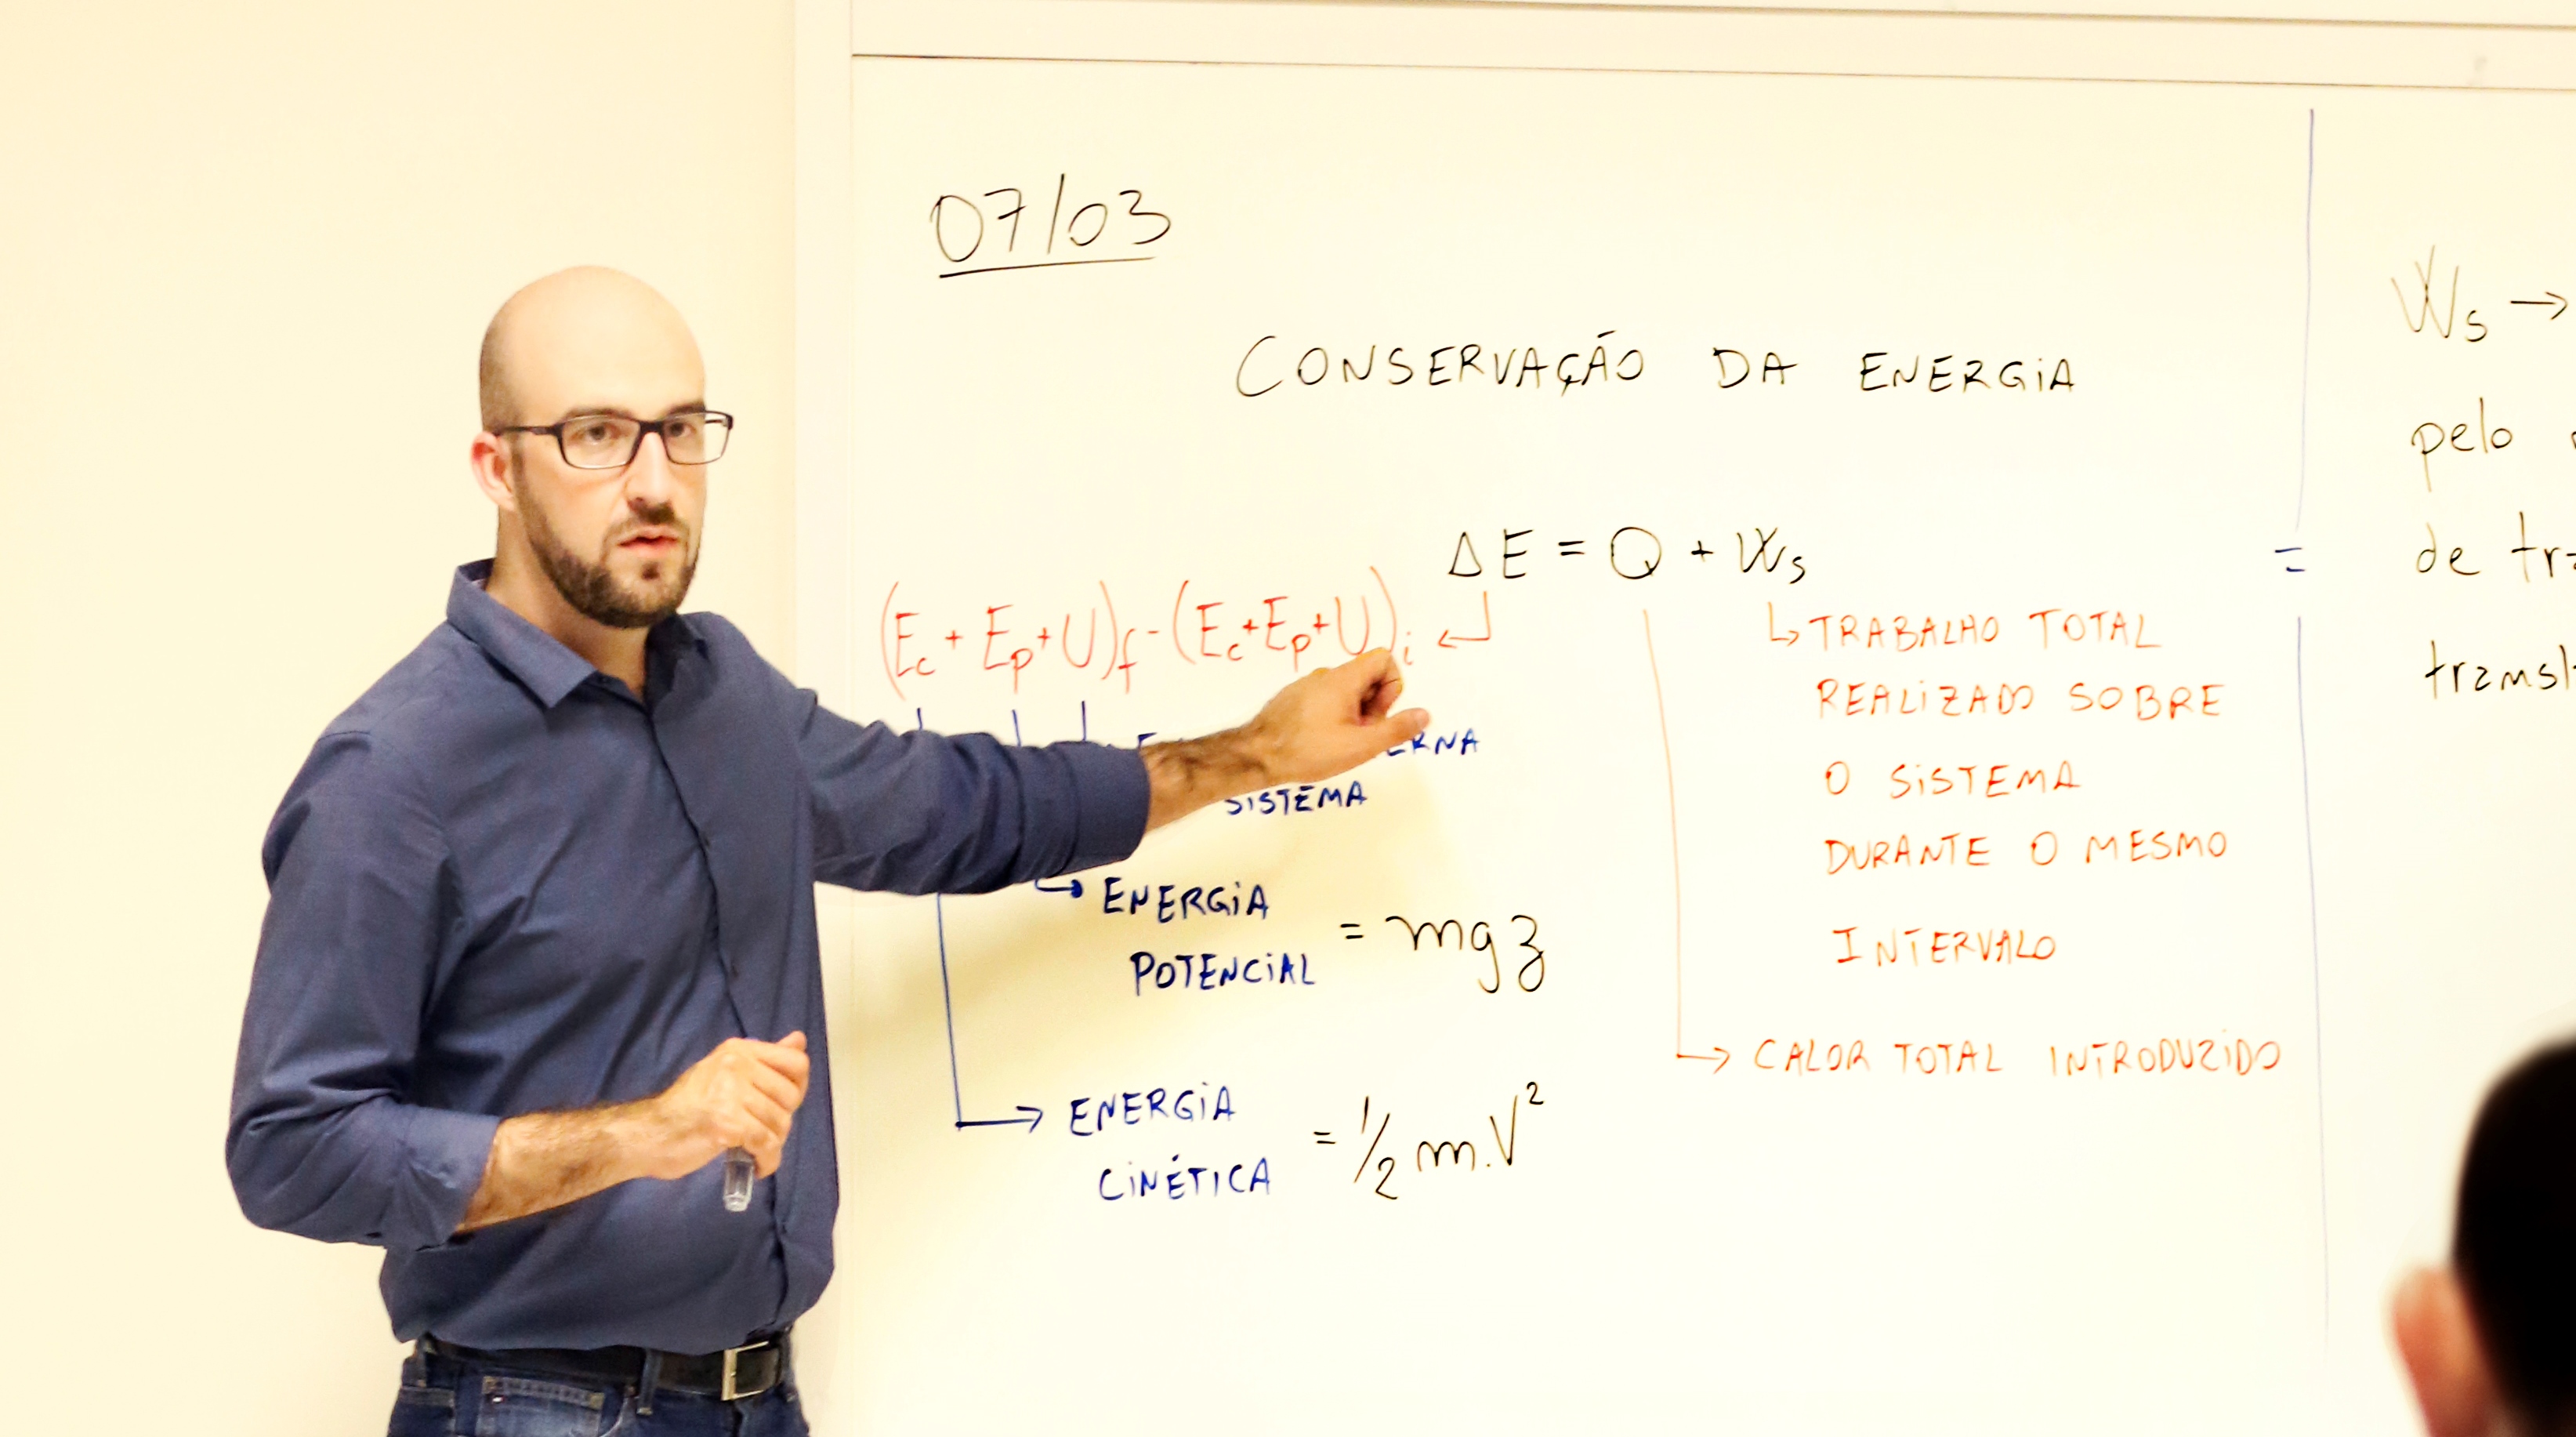 07/03
CONSERVAÇÃO DA ENERGIA
ΔE = Q + Ws
(Ec + Ep + U)f - (Ec + Ep + U)i
SISTEMA
ENERGIA
POTENCIAL = mgz
ENERGIA
CINÉTICA = 1/2 m.V²
↳ TRABALHO TOTAL
REALIZADO SOBRE
O SISTEMA
DURANTE O MESMO
INTERVALO
→ CALOR TOTAL INTRODUZIDO
=
Ws →
pelo
de